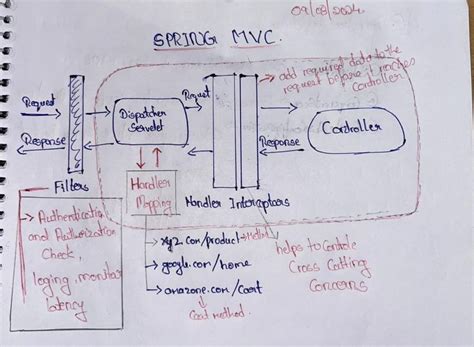 09/08/2024
SPRING MVC.
add required data to the
request before it reaches
Controller
Request
Response
Dispatcher
Servlet
Request
Response
Controller
Filters
Handler
Mapping
Handler Interceptors
Authentication
and Authorization
Check,
loging, monitor
latency
xyz.com/product → Method
google.com/home
amazone.com/Cart
Cart method.
helps to Controle
Cross Cutting
Concerns